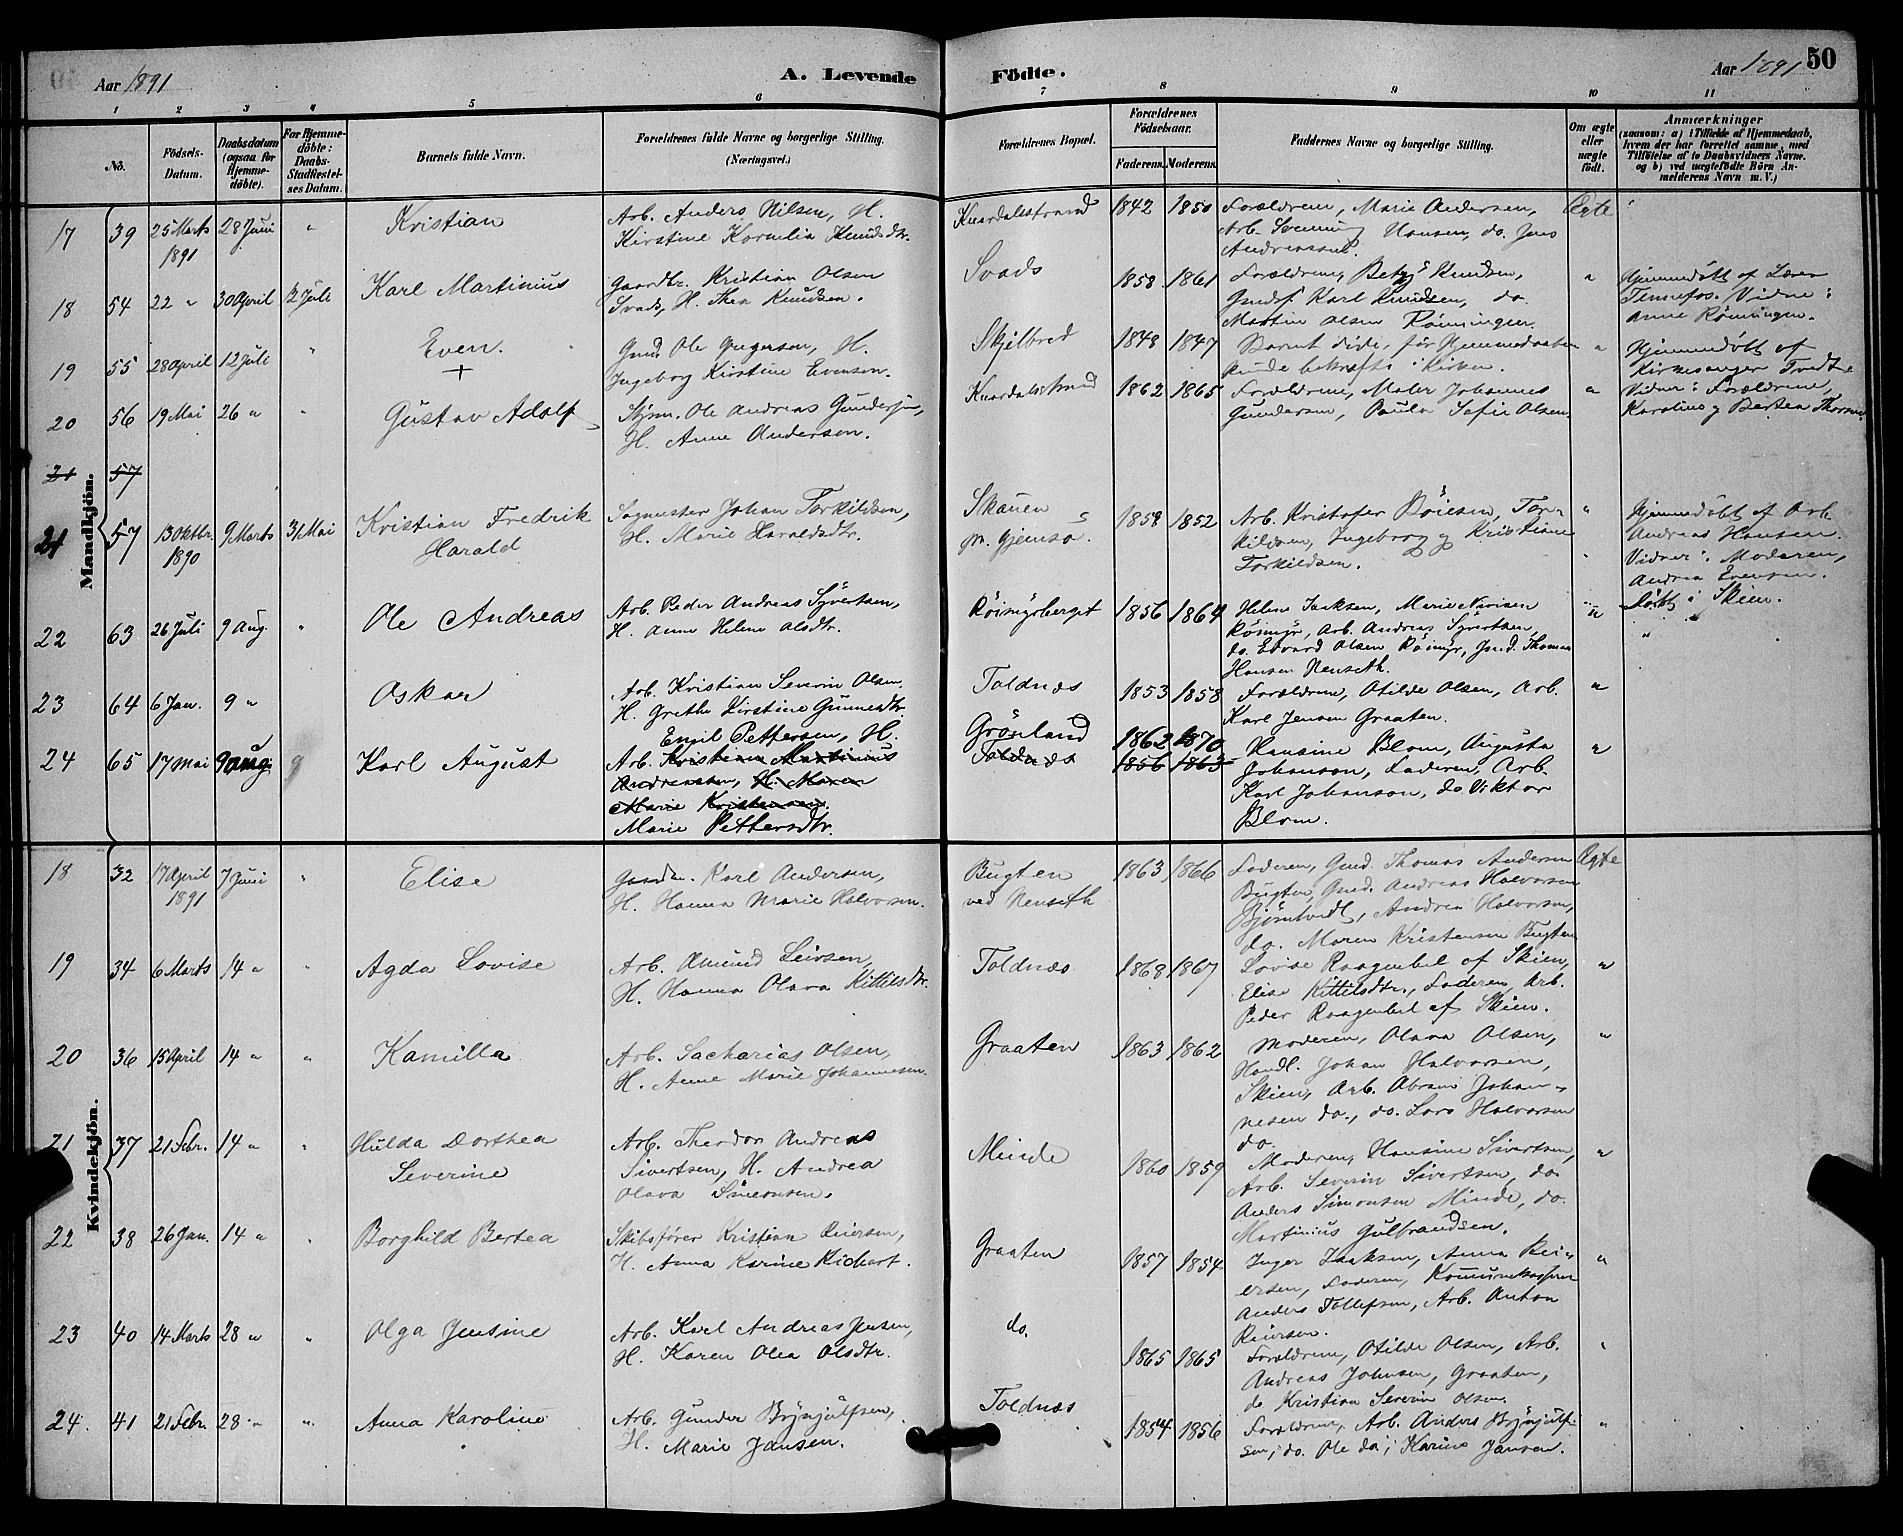 Aar 1891
A. Levende
Födte.
Aar 1891
50
1 2 3 4 5 6 7 8 9 10 11
No.
Födsels-Datum.
Daabsdatum (ogsaa for Hjemme-döbte).
For Hjemme-döbte: Daabs-Stadfæstel-ses Datum.
Barnets fulde Navn.
Forældrenes fulde Navne og borgerlige Stilling. (Næringsvei.)
Forældrenes Bopæl.
Forældrenes Födselsaar.
Faderens. Moderens.
Faddernes Navne og borgerlige Stilling.
Om ægte eller uægte födt.
Anmærkninger
(saasom: a) i Tilfælde af Hjemmedaab,
hvem der har forrettet samme, med
Tilföielse af to Daabsvidners Navne.
og b) ved uægtefödte Börn An-
melderens Navn m. V.)
Mandkjön.
17 39 25 Marts 1891 28 Juni " Kristian
Arb. Anders Nilsen, H.
Kirstine Kornelia Knudsdtr.
Knardalsstrand 1842 1850
Forældrene, Marie Andersen,
Arb. Svenning Hansen, do. Jens
Andreassen.
Ægte
18 54 22 " 30 April 12 Juli Karl Martinius
Gaardbr. Kristian Olsen
Svads, H. Thea Knudsen.
Svads 1858 1861
Forældrene, Betzy Knudsen,
Gmdsf. Karl Knudsen, do.
Martin Olsen Rönningen.
"
Hjemmedöbt af Lærer
Tennefos. Vidne:
Anne Rönningen.
19 55 28 April 12 Juli " Even.
+
Gmd. Ole Gregersen, H.
Ingeborg Kirstine Evensen.
Skjelbred 1848 1847
Barnet döde, för Hjemmedaaben
kunde bekræftes i Kirken.
"
Hjemmedöbt af
Kirkesanger Tvedte
Vidner: Forældrene,
Karoline og Bertea Thorsen.
20 56 19 Mai 26 " " Gustav Adolf
Stjm. Ole Andreas Gundersen,
H. Anne Andersen.
Knardalsstrand 1862 1865
Forældrene, Maler Johannes
Gundersen, Paula Sofie Olsen.
"
21 57
21 57 13 Oktbr. 1890 9 Marts 31 Mai Kristian Fredrik
Harald
Sagmester Johan Torkildsen,
H. Marie Haraldsdtr.
Skauen
p. Gjemsö. 1859 1852
Arb. Kristofer Böiesen, Tor-
kildsen, Ingeborg og Kristiane
Torkildsen.
"
Hjemmedöbt af Arb.
Andreas Hansen.
Vidner: Moderen,
Andrea Evensen.
Födt i Skien.
22 63 26 Juli 9 Aug. " Ole Andreas
Arb. Peder Andreas Syvertsen,
H. Anne Helene Olsdtr.
Röimyrberget 1856 1864
Helene Isaksen, Marie
Röimyr, Arb. Andreas Syvertsen
do. Edvard Olsen Röimyr, Gmd. Thomas
Hansen Nenseth.
"
23 64 6 Jan. 9 " Oskar
Arb. Kristian Severin Olsen,
H. Grethe Kirstine Gunnersdtr.
Toldnæs 1853 1858
Forældrene, Otilde Olsen, Arb.
Karl Jensen Graaten.
"
24 65 17 Mai 9 aug. 9 Karl August
Emil Pettersen, H.
Arb. Kristian Martinius
Andreassen, H. Maren
Marie Kristensen.
Marie Pettersdtr.
Grönland 1862 1870
Toldnæs 1856 1863
Hansine Blom, Augusta
Johanson, Faderen, Arb.
Karl Johanson, do Viktor
Blom.
"
Kvindekjön.
18 32 17 April 1891 7 Juni " Elise
Gaardbr. Karl Andersen,
H. Hanna Marie Halvorsen.
Bugten
ved Nenseth 1863 1866
Faderen, Gmd. Thomas Andersen
Bugten, Gmd. Andreas Halvorsen
Bjerntvedt, Andrea Halvorsen,
do. Maren Kristensen Bugten
Ægte
19 34 6 Marts 14 " " Agda Lovise
Arb. Amund Leivsen,
H. Hanna Olava Kittilsdtr.
Toldnæs 1868 1867
Lovise Raagenbel af Skien,
Elise Kittilsdtr., Faderen, Arb.
Peder Raagenbel af Skien.
"
20 36 15 April 14 " " Kamilla
Arb. Sacharias Olsen,
H. Anne Marie Johannesen.
Graaten 1863 1862
Moderen, Olava Olsen,
Handl. Johan Halvorsen,
Skien, Arb. Abram Johan-
nesen do., do. Lars Halvorsen
do.
"
21 37 21 Febr. 14 " " Hulda Dorthea
Severine
Arb. Theodor Andreas
Sivertsen, H. Andrea
Olava Simonsen.
Minde 1860 1859
Moderen, Hansine Sivertsen,
Arb. Severin Sivertsen, do.
Anders Simonsen Minde, do.
Martinius Gulbrandsen.
"
22 38 26 Jan. 14 " " Borghild Bertea
Skibsförer Kristian Reiersen,
H. Anna Karine Richart.
Graaten 1857 1854
Inger Isaksen, Anna Rei-
ersen, Faderen, Kommunekasserer
Anders Tollefsen, Arb. Anton
Reiersen.
"
23 40 14 Marts 28 " " Olga Jensine
Arb. Karl Andreas Jensen,
H. Karen Olea Olsdtr.
do. 1865 1865
Forældrene, Otilde Olsen, Arb.
Andreas Johnsen, Graaten,
do Kristian Severin Olsen.
"
24 41 21 Febr. 28 " " Anna Karoline
Arb. Gunder Brynjulfsen,
H. Marie Jansen.
Toldnæs 1854 1856
Forældrene, Arb. Anders Brynjulf-
sen, do. Ole do., Karine Jansen.
"